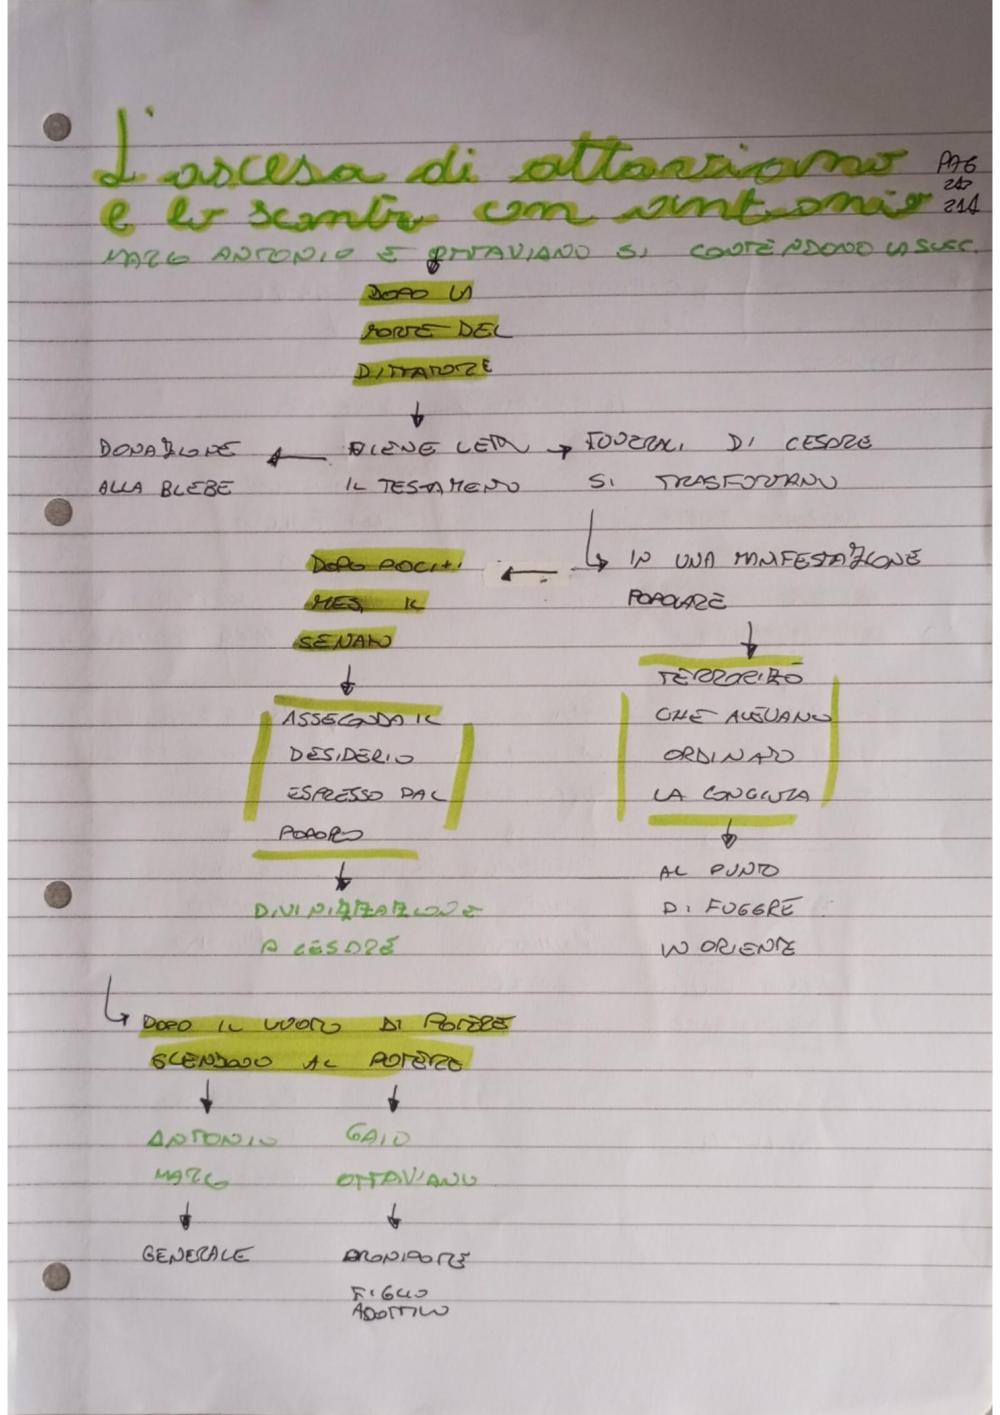 L'ascesa di ottaviano
e lo scontro con antonio
PAG
210
211
MARCO ANTONIO E OTTAVIANO SI CONTENDONO LA SUCC.
DOPO LA
MORTE DEL
DITTATORE
DONAZIONE
ALLA BLEBE
VIENE LETTO
IL TESTAMENTO
FUNERALI DI CESARE
SI TRASFORMANO
IN UNA MANIFESTAZIONE
POPOLARE
DOPO POCHI
MESI IL
SENATO
TERRORIZZÒ
CHE AVEVANO
ORDINATO
LA CONGIURA
ASSECONDA IL
DESIDERIO
ESPRESSO DAL
POPOLO
AL PUNTO
DI FUGGRE
IN ORIENTE
DIVINIZZAZIONE
A CESARE
DOPO IL VUOTO DI POTERE
SCENDONO AL POTERE
ANTONIO
MARCO
GAIO
OTTAVIANO
GENERALE
PRONIPOTE
FIGLIO
ADOTTIVO